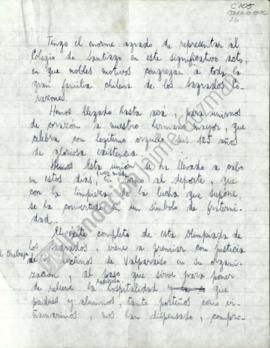 C105
Tengo el enorme agrado de representar al
Colegio de Santiago en este significativo acto,
en que nobles motivos congregan a toda la
gran familia chilena de los Sagrados Co-
razones.
Hemos llegado hasta acá para unirnos
de corazón a nuestro hermano mayor, que
celebra con legítimo orgullo sus 125 años
de gloriosa existencia.
esta unión se ha llevado a cabo
en estos días, al deporte, que
con la limpieza la lucha que supone
se ha convertido en un símbolo de fraterni-
dad.
El éxito completo de esta Olimpiada de
los Sagrados, viene a premiar con justicia
el trabajo de Valparaíso en su organi-
zación, al paso que sirve para poner
de relieve la hospitalidad que
padres y alumnos, tanto porteños como vi-
ñamarinos, nos han dispensado, compro-